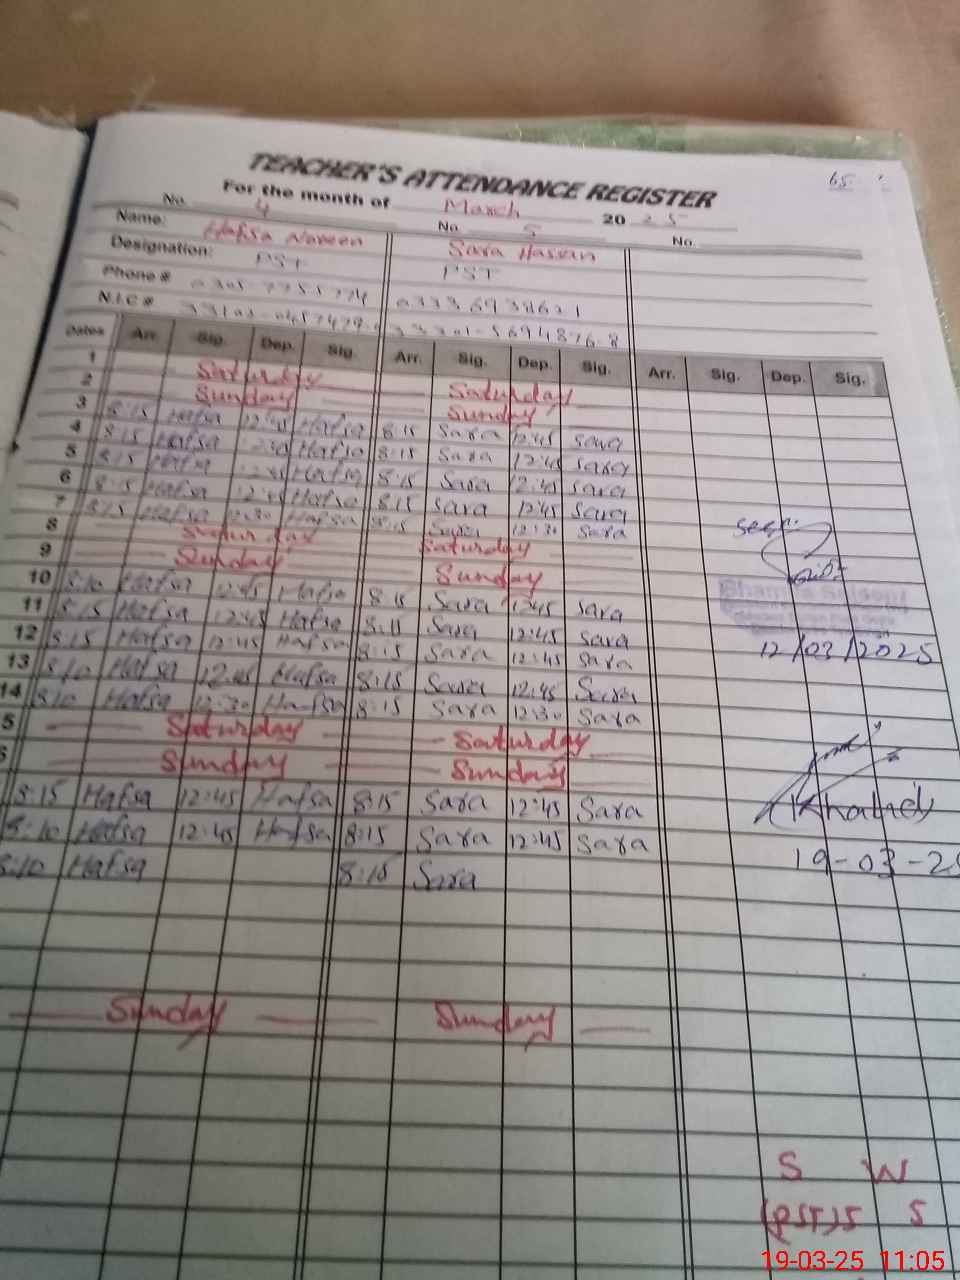 65
TEACHER'S ATTENDANCE REGISTER
For the month of March 2025
No. 4 No. 5 No.
Name: Hafsa Naveen Sara Hassan
Designation: PST PST
Phone # 0305-7755774 0333.6938621
N.I.C #
Dates Arr. Sig. Dep. Sig. Arr. Sig. Dep. Sig. Arr. Sig. Dep. Sig.
1 Saturday Saturday
2 Sunday Sunday
3 8:15 Hafsa 12:45 Hafsa 8:15 Sara 12:45 Sara
4 8:15 Hafsa Hafsa 8:15 Sara 12:45 Sara
5 8:15 Hafsa 12:45 Hafsa 8:15 Sara 12:45 Sara
6 8:15 Hafsa 12:45 Hafsa 8:15 Sara 12:45 Sara
7 8:15 Hafsa 12:30 Hafsa 8:15 Sara 12:30 Sara
8 Saturday Saturday
9 Sunday Sunday
10 8:10 Hafsa 12:45 Hafsa 8:15 Sara 12:45 Sara
11 8:15 Hafsa 12:45 Hafsa 8:15 Sara 12:45 Sara
12 8:15 Hafsa 12:45 Hafsa 8:15 Sara 12:45 Sara
12/03/2025
13 8:10 Hafsa 12:45 Hafsa 8:15 Sara 12:45 Sara
14 8:10 Hafsa 12:30 Hafsa 8:15 Sara 12:30 Sara
5 Saturday Saturday
Sunday Sunday
8:15 Hafsa 12:45 Hafsa 8:15 Sara 12:45 Sara
(Khalid)
8:10 Hafsa 12:45 Hafsa 8:15 Sara 12:45 Sara
19-03-25
8:10 Hafsa 8:15 Sara
Sunday Sunday
S W
(PST) 5 5
19-03-25 11:05